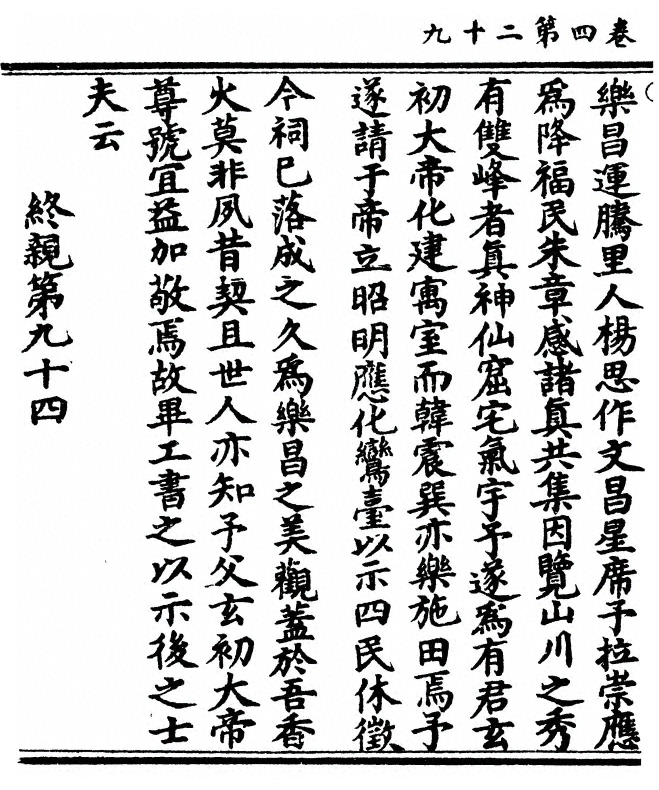 卷四第二十九
樂昌運騰里人楊思作文昌星席予拉崇應
爲降福民朱章感諸眞共集因覽山川之秀
有雙峰者眞神仙窟宅氣宇予遂爲有君玄
初大帝化建寓室而韓震巽亦樂施田焉予
遂請于帝立昭明應化鸞臺以示四民休徵
今祠已落成之久爲樂昌之美觀蓋於吾香
火莫非夙昔契且世人亦知予父玄初大帝
尊號宜益加敬焉故畢工書之以示後之士
夫云
終親第九十四